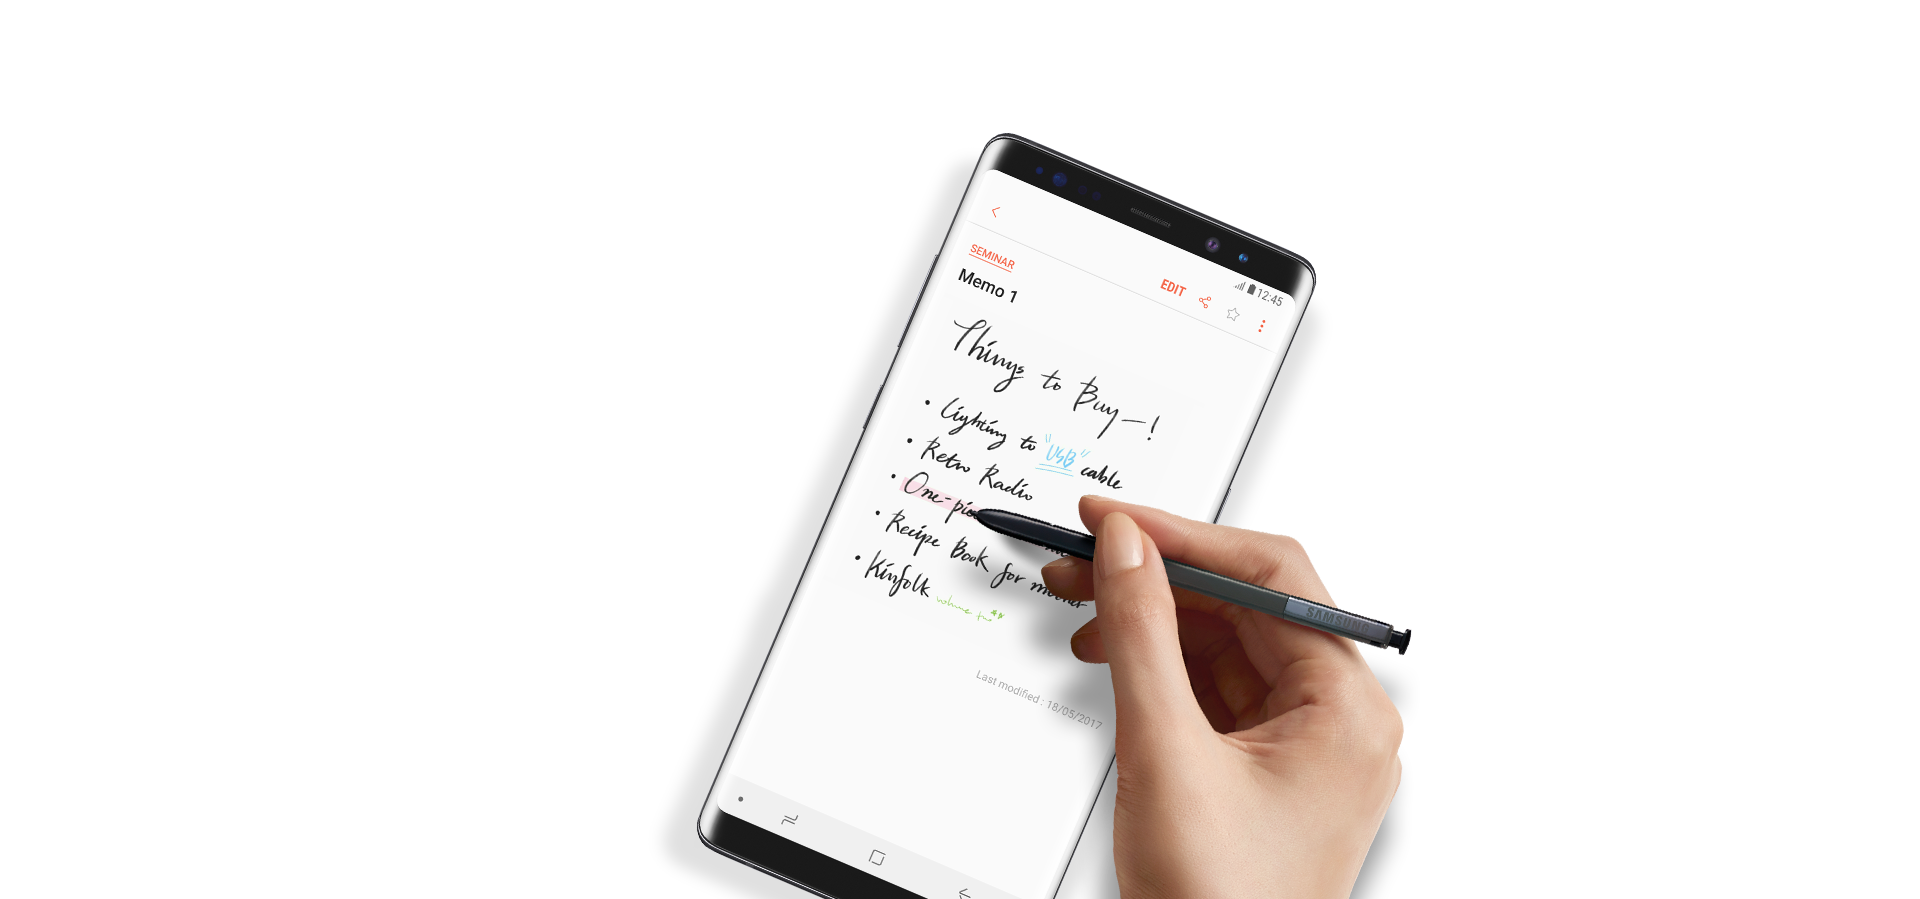 12:45
EDIT
SEMINAR
Memo 1
Things to Buy—!
• Lighting to "USB" cable
• Retro Radio
• One-
• Recipe Book for mother
• Kinfolk volume two
Last modified : 18/05/2017
SAMSUNG